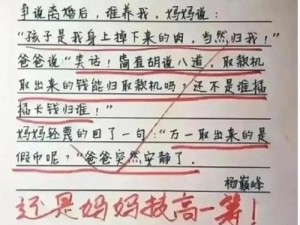 争说离婚后，谁养我，妈妈说：
“孩子是我身上掉下来的肉，当然归我！
爸爸说“笑话！简直胡说八道，取款机
取出来的钱能归取款机吗，还不是谁插
插卡钱归谁！”
妈妈轻蔑的回了一句：“万一取出来的是
假币呢，”爸爸突然安静了.
杨巅峰
还是妈妈技高一筹！